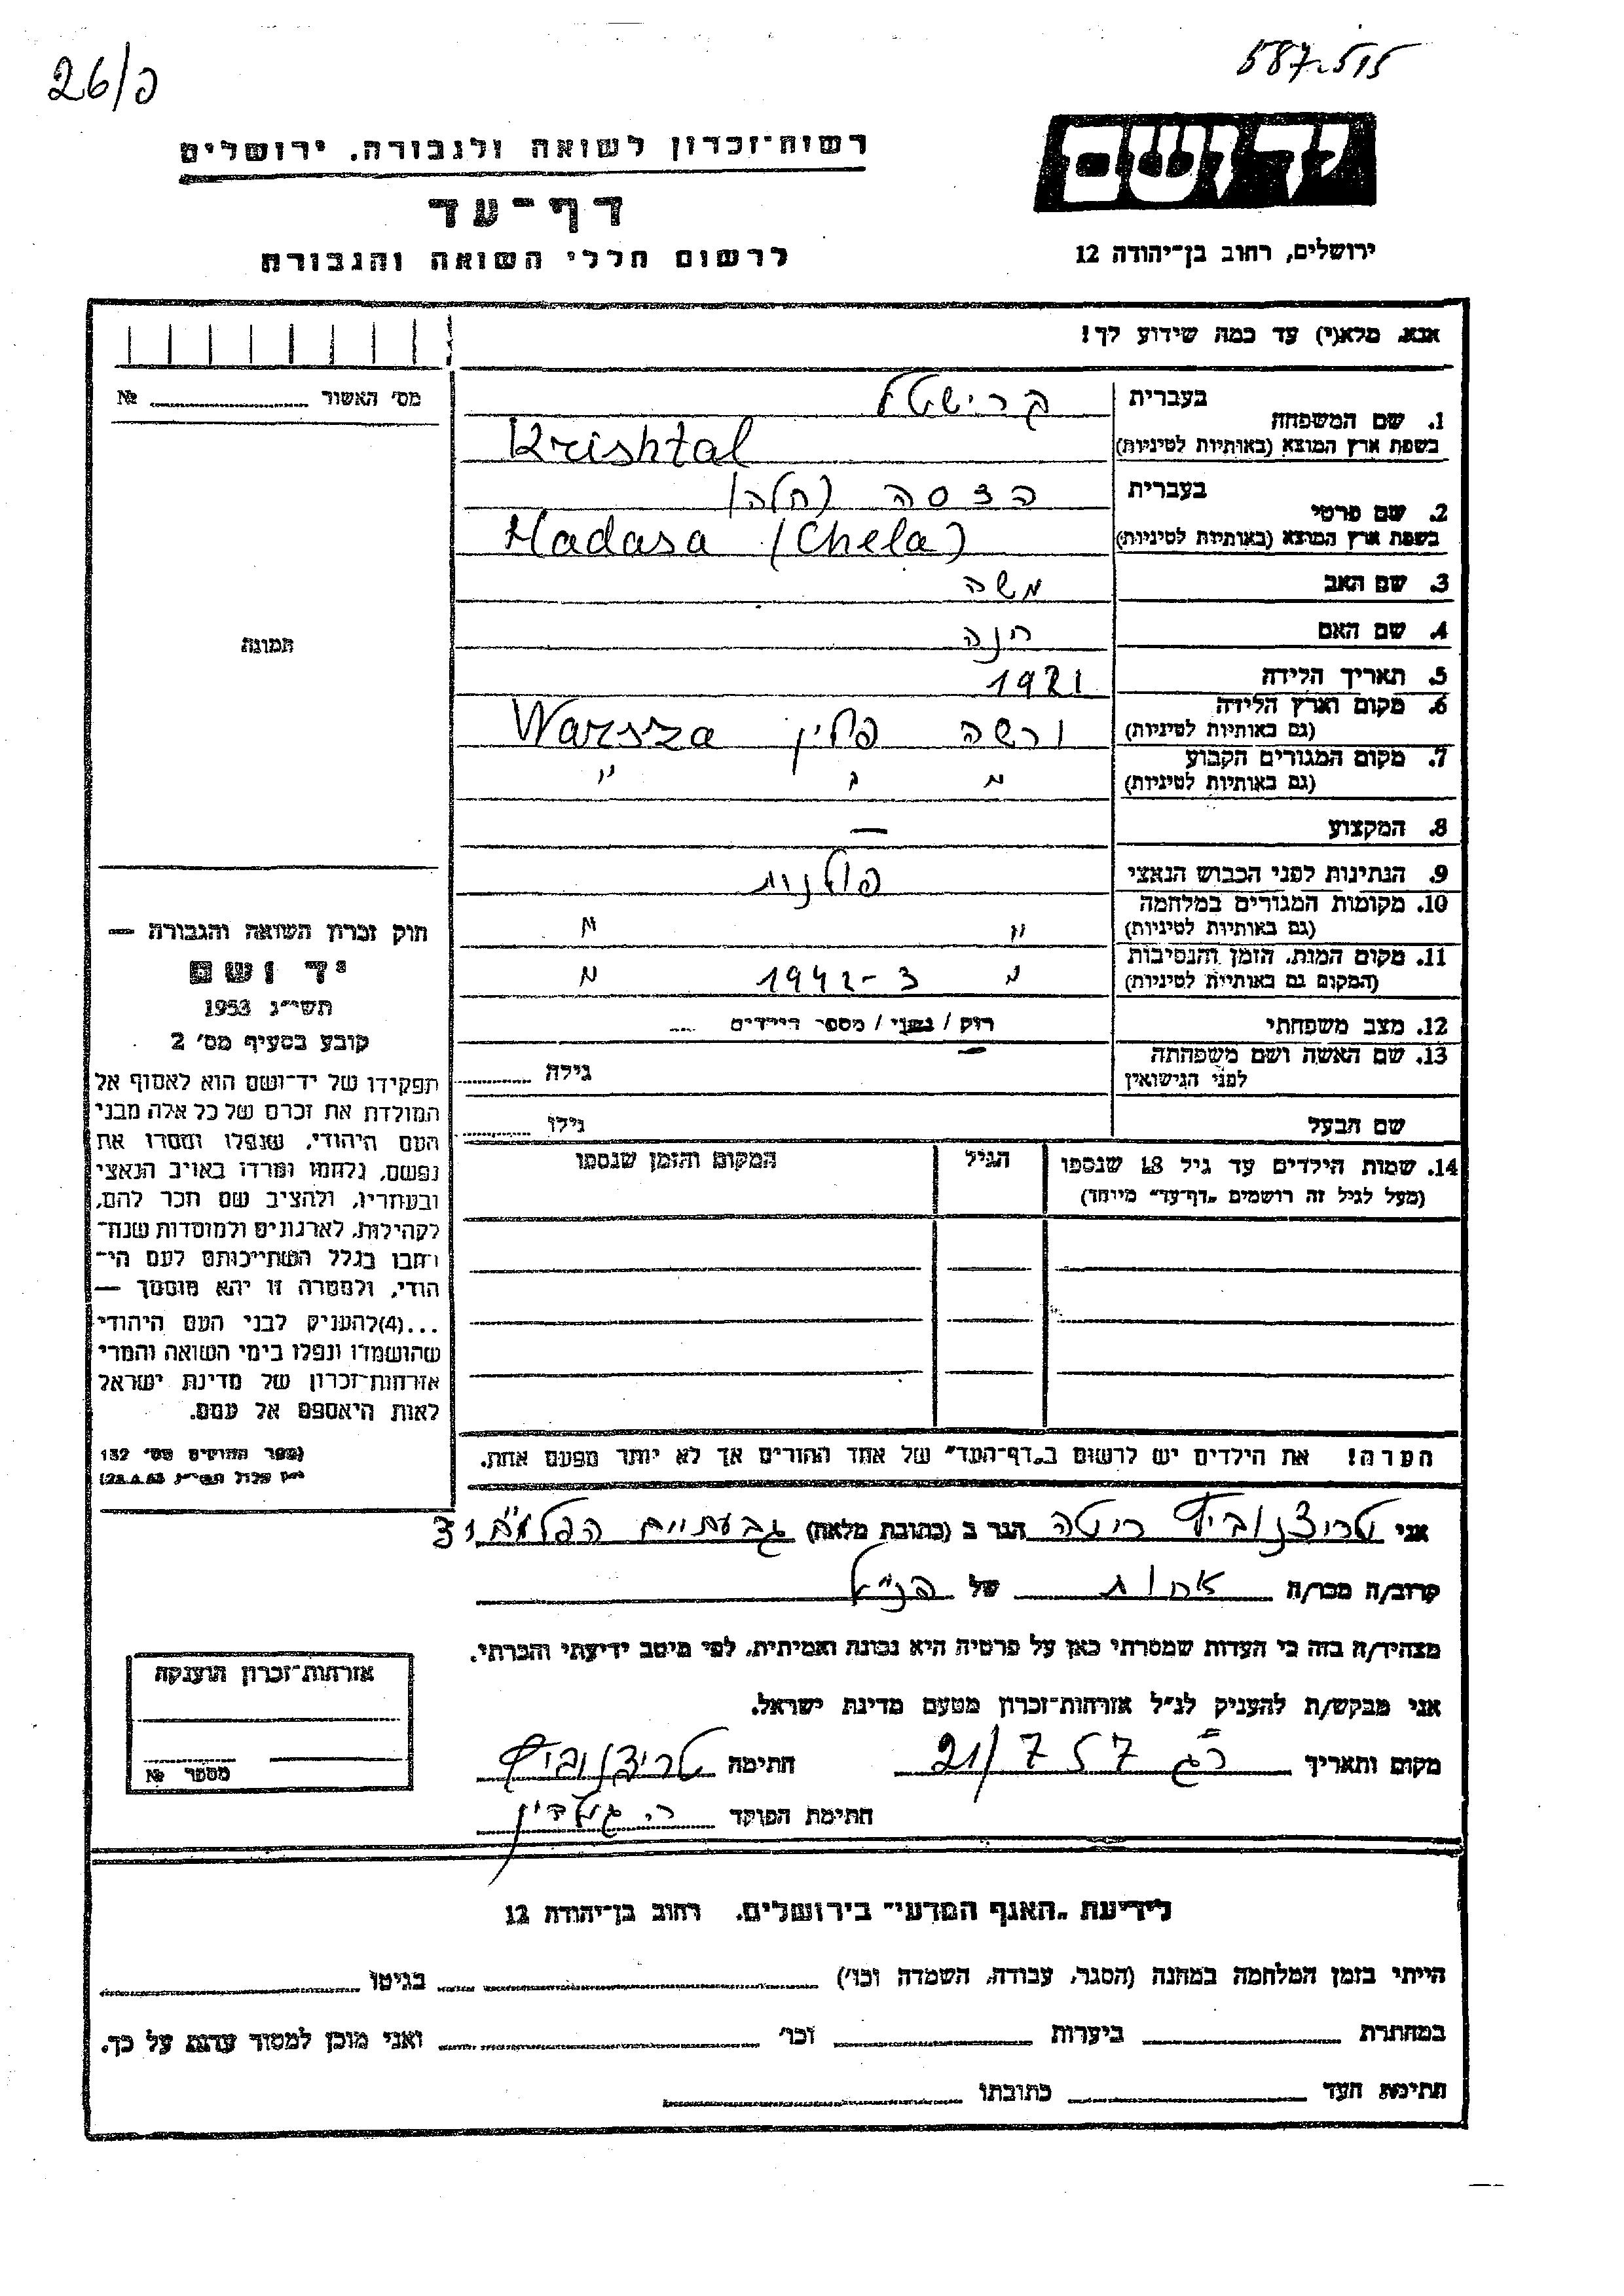 26/כ
587515
יד ושם
רשות־זכרון לשואה ולגבורה, ירושלים
דף־עד
לרשום חללי השואה והגבורה
ירושלים, רחוב בן־יהודה 12
אנא, מלא(י) עד כמה שידוע לך!
מס' האשור № 
1. שם המשפחה בעברית קרישטל
בשפת ארץ המוצא (באותיות לטיניות) Krishtal
2. שם פרטי בעברית הדסה (חלה)
בשפת ארץ המוצא (באותיות לטיניות) Hadasa (Chela)
3. שם האב משה
4. שם האם חנה
5. תאריך הלידה 1921
6. מקום וארץ הלידה ורשה פולין Warsza
(גם באותיות לטיניות)
7. מקום המגורים הקבוע " " "
(גם באותיות לטיניות)
8. המקצוע —
9. הנתינות לפני הכבוש הנאצי פולנית
10. מקומות המגורים במלחמה " "
(גם באותיות לטיניות)
11. מקום המות, הזמן והנסיבות " 1942-3 "
(המקום גם באותיות לטיניות)
12. מצב משפחתי רוק / נשוי / מספר הילדים ....
13. שם האשה ושם משפחתה —
לפני הנישואין גילה
שם הבעל גילו
14. שמות הילדים עד גיל 18 שנספו הגיל המקום והזמן שנספו
(מעל לגיל זה רושמים "דף־עד" מיוחד)
הערה! את הילדים יש לרשום ב"דף־העד" של אחד ההורים אך לא יותר מפעם אחת.
תמונה
חוק זכרון השואה והגבורה —
יד ושם
תשי"ג 1953
קובע בסעיף מס' 2
תפקידו של יד־ושם הוא לאסוף אל
המולדת את זכרם של כל אלה מבני
העם היהודי, שנפלו ומסרו את
נפשם, נלחמו ומרדו באויב הנאצי
ובעוזריו, ולהציב שם וזכר להם,
לקהילות, לארגונים ולמוסדות שנח־
רבו בגלל השתייכותם לעם הי־
הודי, ולמטרה זו יהא מוסמך —
...(4) להעניק לבני העם היהודי
שהושמדו ונפלו בימי השואה והמרי
אזרחות־זכרון של מדינת ישראל
לאות היאספם אל עמם.
(ספר החוקים מס' 132
אני טריצנוביץ ריטה הגר ב (כתובת מלאה) גבעתיים
קרוב/ה מכר/ה אחות של הנ"ל
מצהיר/ה בזה כי העדות שמסרתי כאן על פרטיה היא נכונה ואמיתית, לפי מיטב ידיעתי והכרתי.
אני מבקש/ת להעניק לנ"ל אזרחות־זכרון מטעם מדינת ישראל.
מקום ותאריך ר"ג 21/7 57 חתימה טריצנוביץ
חתימת הפוקד
אזרחות־זכרון הוענקה
מספר №
לידיעת "האגף המדעי" בירושלים, רחוב בן־יהודה 12
הייתי בזמן המלחמה במחנה (הסגר, עבודה, השמדה וכו') בגיטו
במחתרת ביערות וכו' ואני מוכן למסור עדות על כך.
חתימת העד כתובתו